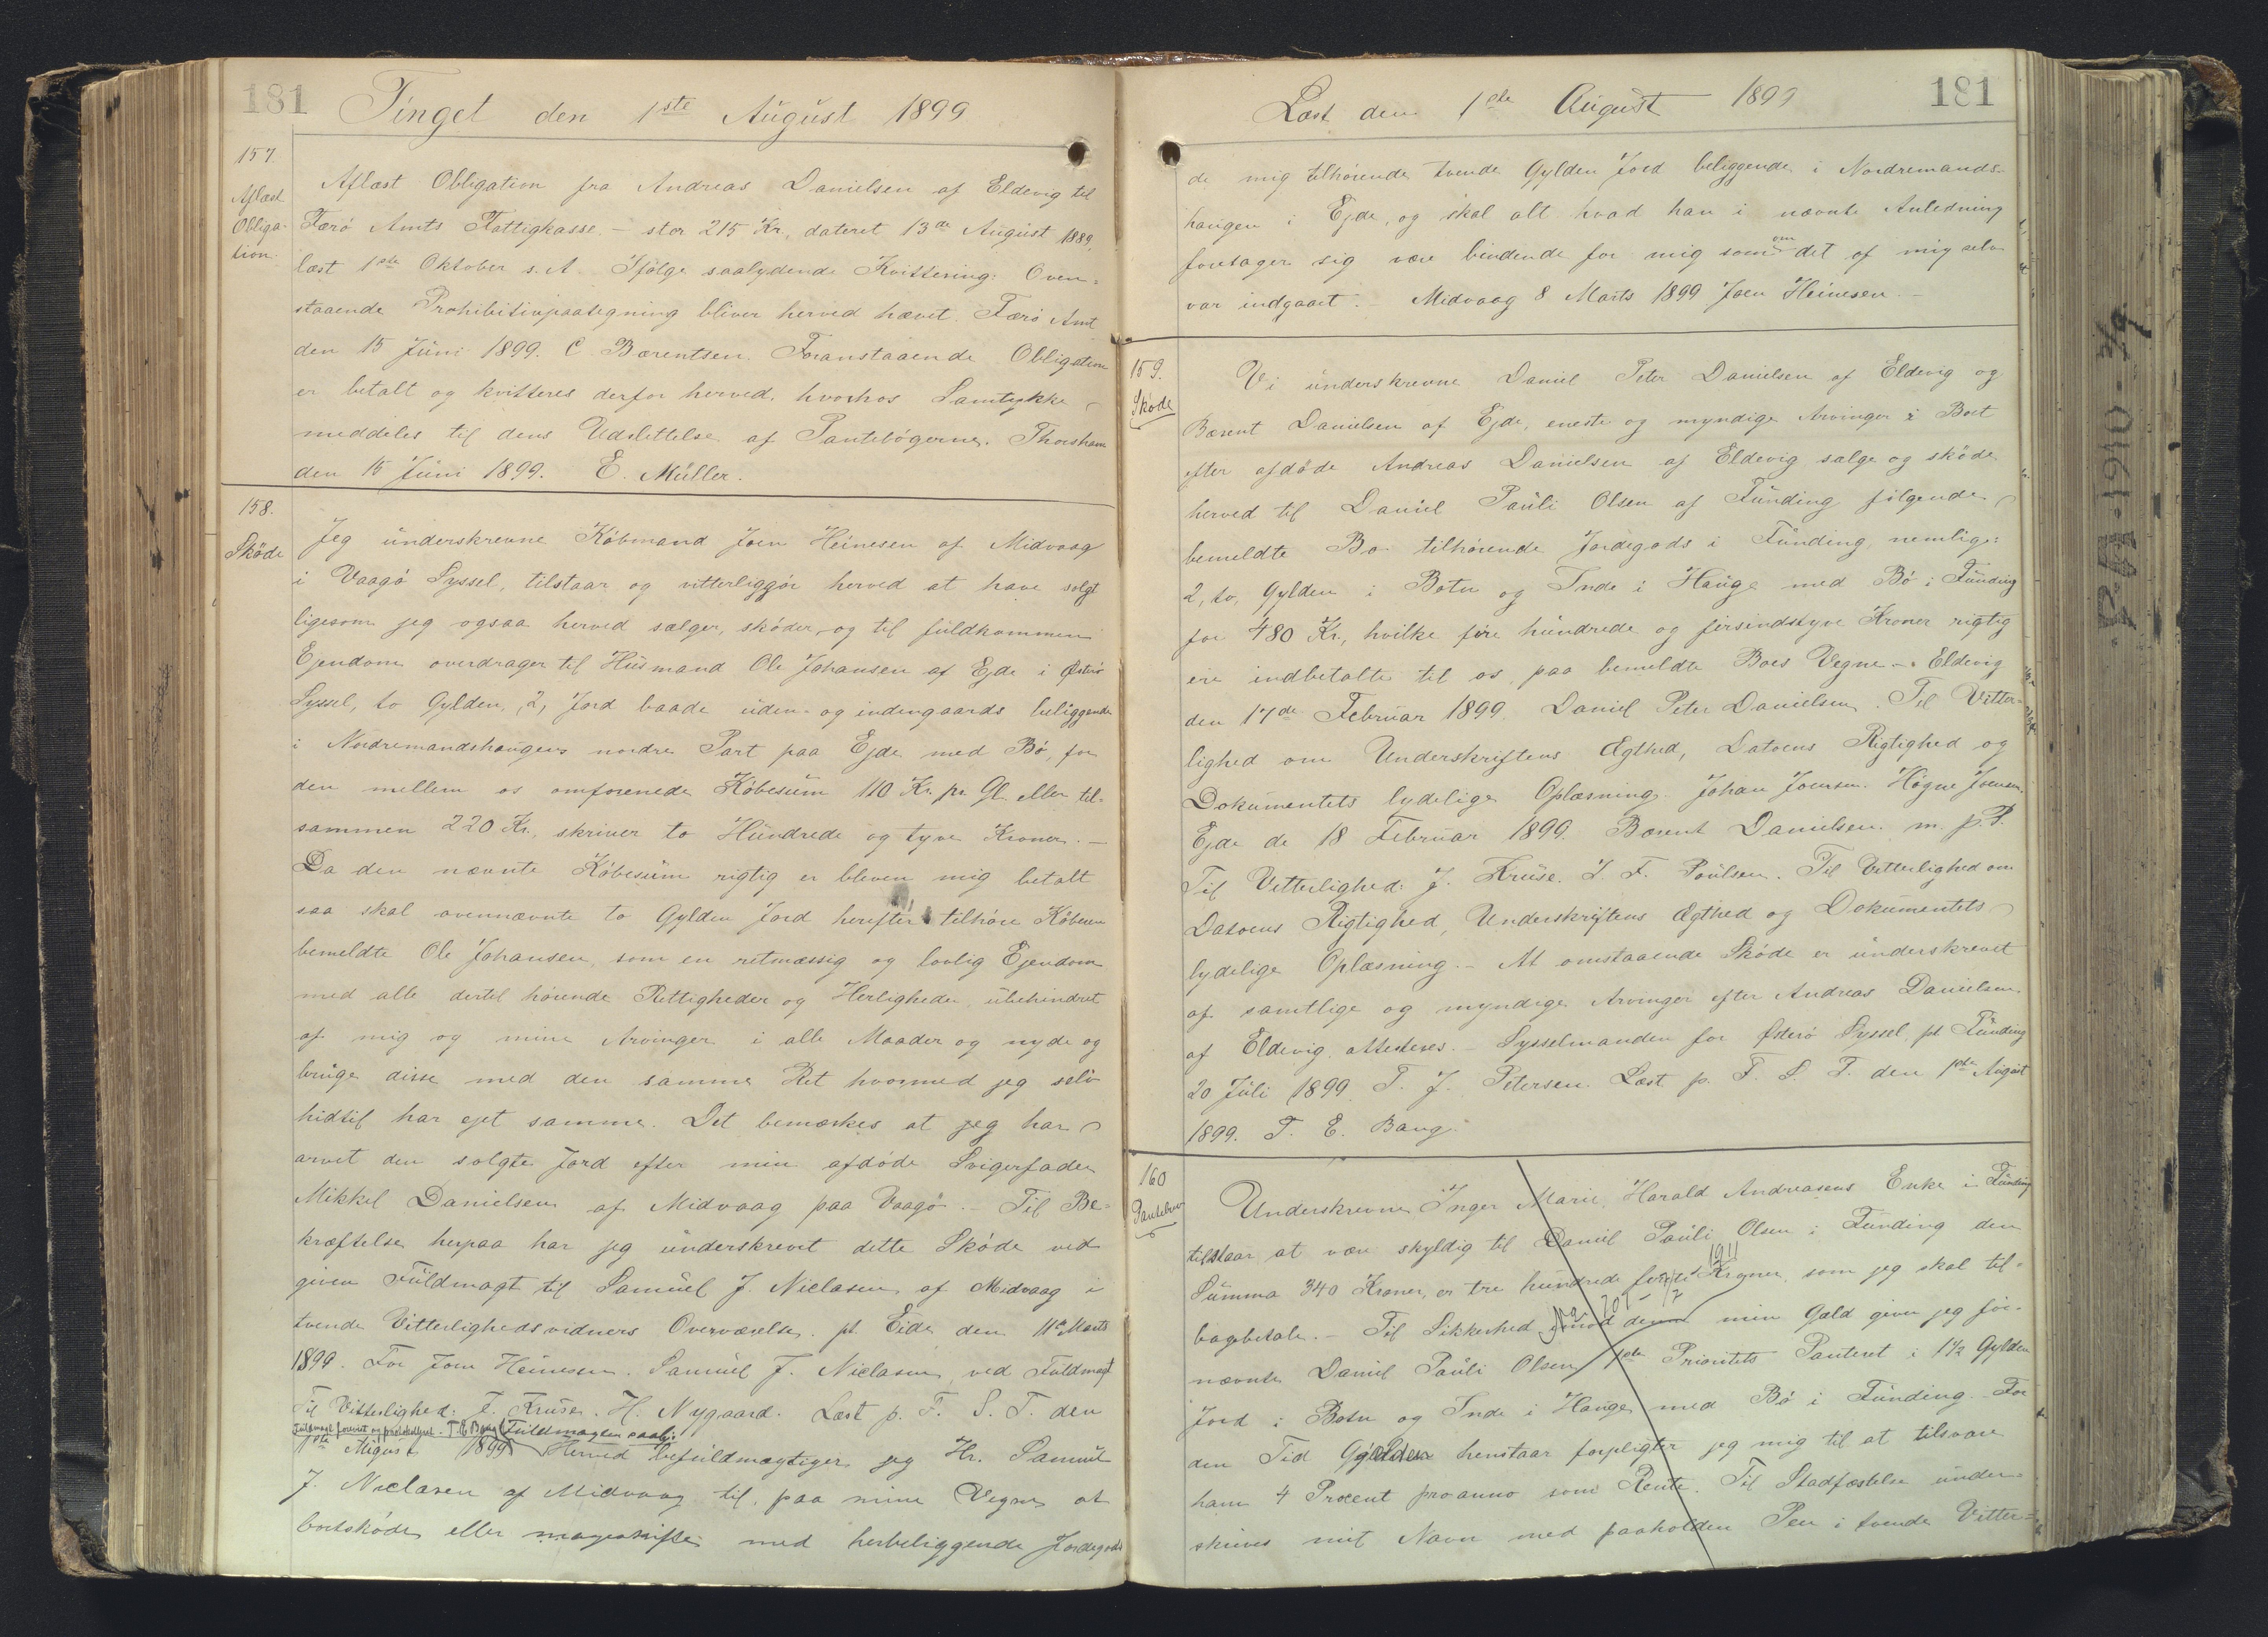 181
Tinget den 1ste August 1899
157.
Aflæst
Obliga-
tion.
Aflæst Obligation fra Andreas Danielsen af Eldevig til
Færö Amts Fattigkasse. – stor 215 Kr., dateret 13de August 1889,
læst 1ste Oktober s. A. Ifölge saalydende Kvittering: Oven-
staaende Prohibitivpaategning bliver herved hævet. Færö Amt
den 15 Juni 1899. C Bærentsen. Foranstaaende Obligation
er betalt og kvitteres derfor herved, hvorhos Samtykke
meddeles til dens Udslettelse af Pantebögerne. Thorshavn
den 15 Juni 1899. E. Müller.
158.
Sköde
Jeg underskrevne Köbmand Joen Heinesen af Midvaag
i Vaagö Syssel, tilstaar og vitterliggör herved at have solgt
ligesom jeg ogsaa herved sælger, sköder, og til fuldkommen
Ejendom overdrager til Husmand Ole Johansen af Ejde i Österö
Syssel, to Gylden, 2, Jord baade uden- og indengaards beliggende
i Nordremandshaugens nordre Part paa Ejde med Bö, for
den mellem os omforenede Köbesum 110 Kr. pr. Gl. eller til-
sammen 220 Kr., skriver to Hundrede og tyve Kroner. –
Da den nævnte Köbesum rigtig er bleven mig betalt
saa skal ovennævnte to Gylden Jord herefter tilhöre Köberen
bemeldte Ole Johansen, som en retmæssig og lovlig Ejendom
med alle dertil hörende Rettigheder og Herligheder ubehindret
af mig og mine Arvinger i alle Maader og nyde og
bruge disse med den samme Ret hvormed jeg selv
hidtil har ejet samme. Det bemærkes at jeg har
arvet den solgte Jord efter min afdöde Svigerfader
Mikkel Danielsen af Midvaag paa Vaagö. – Til Be-
kræftelse herpaa har jeg underskrevet dette Sköde ved
given Fuldmagt til Samuel J. Niclasen af Midvaag i
tvende Vitterlighedsvidners Overværelse. pt. Eide den 11te Marts
1899. For Joen Heinesen. Samuel J. Niclasen ved Fuldmagt
Til Vitterlighed: J. Kruse. H. Nygaard. Læst p. F. S. T. den
Fuldmagt forevist og protokolleret. T. E. Bang. Fuldmagten saal.:
1ste August 1899 Herved befuldmægtiger jeg Hr. Samuel
J. Niclasen af Midvaag til, paa mine Vegne at
bortsköde eller mageskifte med herbeliggende Jordegods
Læst den 1ste August 1899
181
de mig tilhörende tvende Gylden Jord beliggende i Nordremands-
haugen i Ejde, og skal alt hvad han i nævnte Anledning
om
foretager sig være bindende for mig som det af mig selv
var indgaaet. – Midvaag 8 Marts 1899 Joen Heinesen. –
159.
Sköde
Vi underskrevne Daniel Peter Danielsen af Eldevig og
Bærent Danielsen af Ejde, eneste og myndige Arvinger i Boet
efter afdöde Andreas Danielsen af Eldevig sælge og sköde
herved til Daniel Pauli Olsen af Funding fölgende
bemeldte Bo tilhörende Jordegods i Funding, nemlige:
2, to, Gylden i Botn og Inde i Hauge med Bö i Funding
for 480 Kr., hvilke fire hundrede og firsindstyve Kroner rigtig
ere indbetalte til os paa bemeldte Boes Vegne. – Eldevig
den 17de Februar 1899. Daniel Peter Danielsen. Til Vitter-
lighed om Underskriftens Ægthed, Datoens Rigtighed og
Dokumentets lydelige Oplæsning. Johan Joensen. Högne Joensen.
Ejde de 18 Februar 1899. Bærent Danielsen m. p. P.
Til Vitterlighed: J. Kruse. J. F. Poulsen. Til Vitterlighed om
Datoens Rigtighed, Underskriftens Ægthed og Dokumentets
lydelige Oplæsning. – At omstaaende Sköde er underskrevet
af samtlige og myndige Arvinger efter Andreas Danielsen
af Eldevig, attesteres. – Sysselmanden for Österö Syssel, pt Funding
20 Juli 1899. T. J. Petersen. Læst p. F. S. T. den 1ste August
1899. T. E. Bang.
160
Pantebrev
Underskrevne Inger Marie, Harald Andreasens Enke i Funding
tilstaar at være skyldig til Daniel Pauli Olsen i Funding den
Summa 340 Kroner, er tre hundrede forti Kroner, som jeg skal til-
bagebetale. – Til Sikkerhed imod denne min Gæld giver jeg for-
nævnte Daniel Pauli Olsen 1ste Prioritets Panteret i 1½ Gylden
Jord i Botn og Inde i Hauge med Bö i Funding. For
den Tid Gjælden henstaar forpligter jeg mig til at tilsvare
ham 4 Procent pro anno som Rente. Til Stadfæstelse under-
skrives mit Navn med paaholden Pen i tvende Vitter-